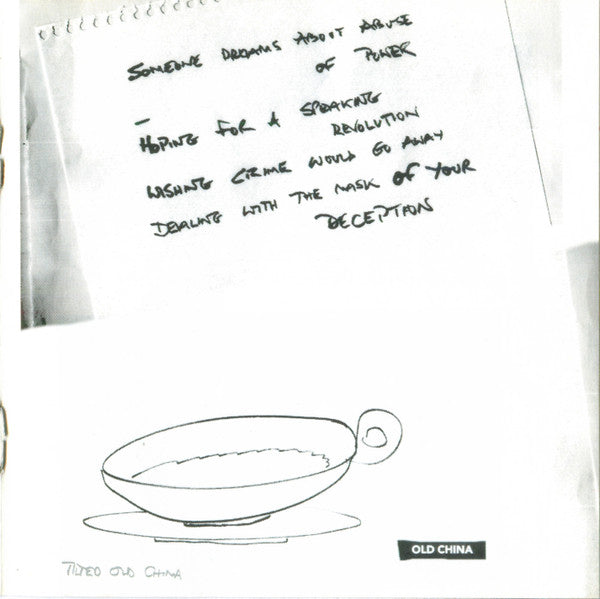 SOMEONE DREAMS ABOUT ABUSE
OF POWER
—
HOPING FOR A SPEAKING
REVOLUTION
WISHING CRIME WOULD GO AWAY
DEALING WITH THE MASK OF YOUR
DECEPTION
OLD CHINA
OLD CHINA